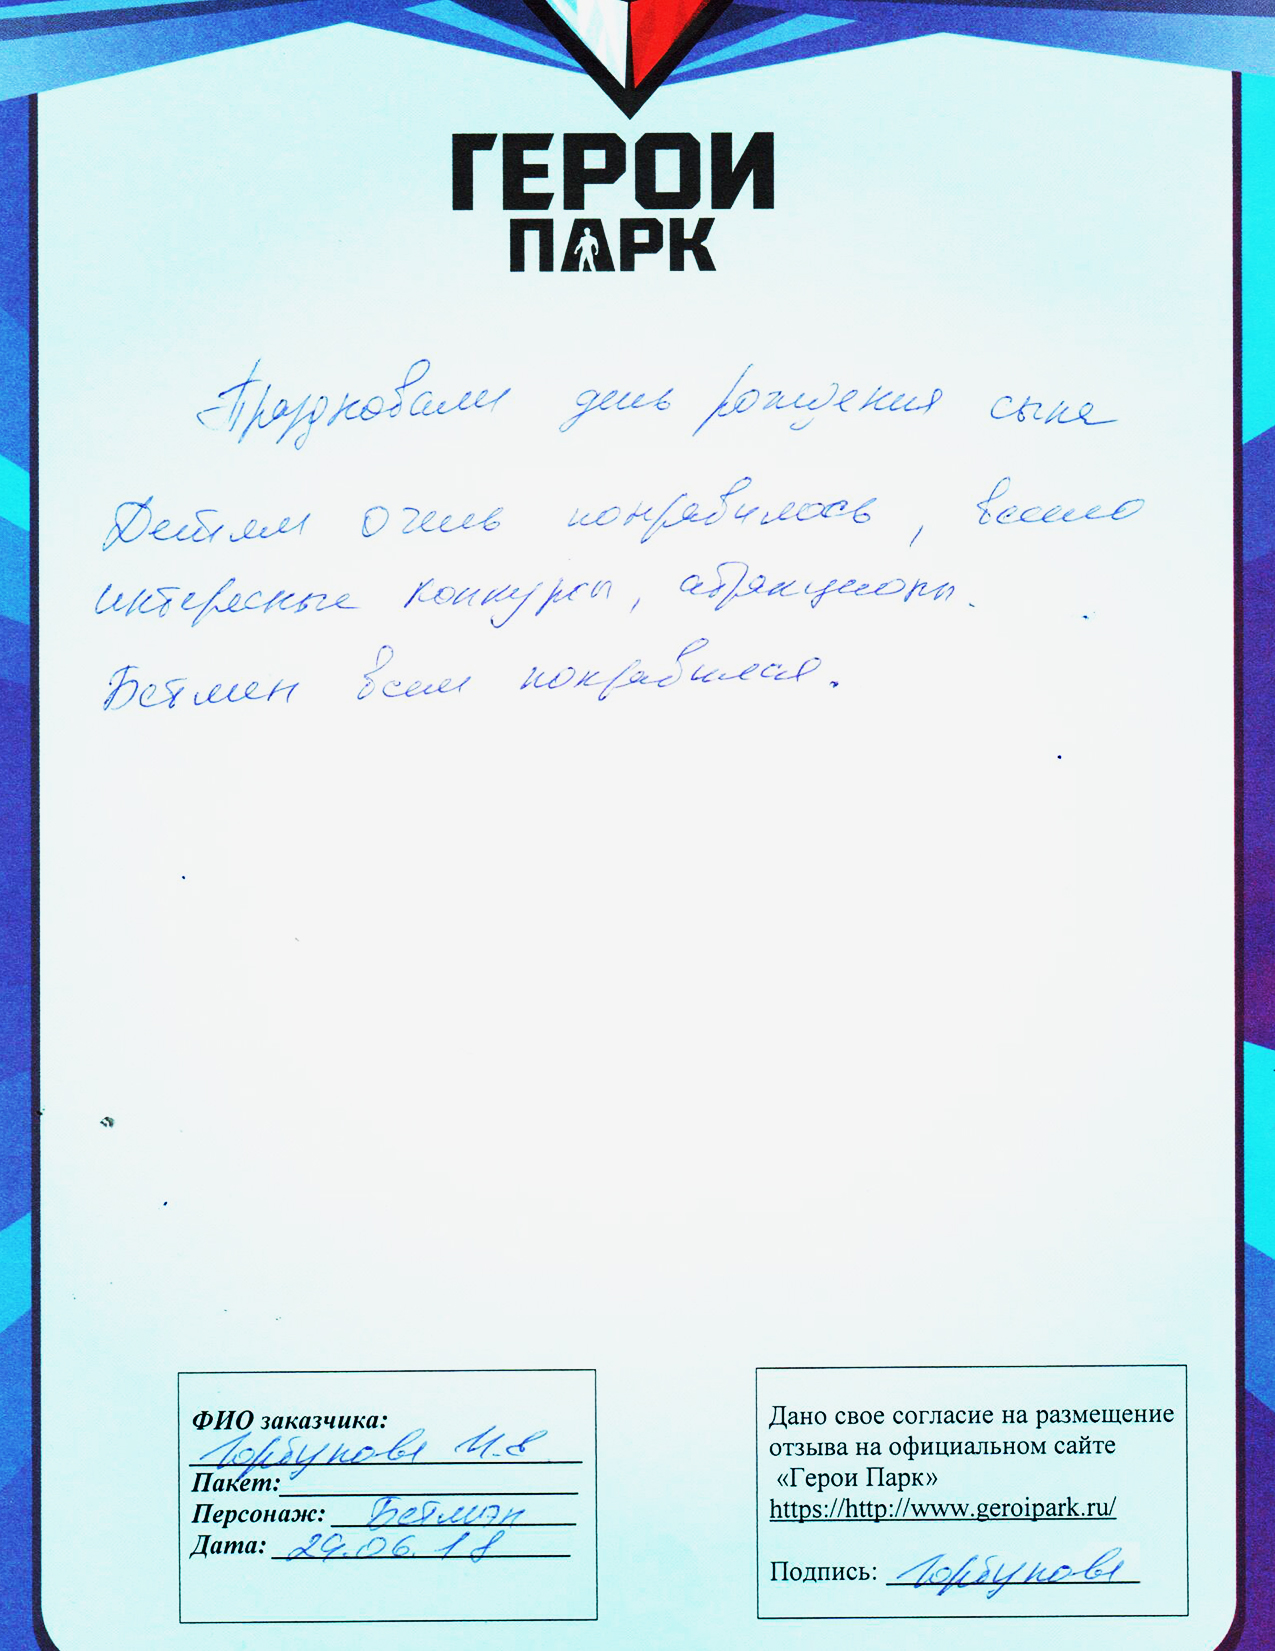 ГЕРОИ
ПАРК
Праздновали день рождения сына
Детям очень понравилось, весело
интересные конкурсы, аттракционы.
Бетмен всем понравился.
ФИО заказчика:
Горбунова И.В
Пакет:
Персонаж: Бетмэн
Дата: 29.06.18
Дано свое согласие на размещение
отзыва на официальном сайте
«Герои Парк»
https://http://www.geroipark.ru/
Подпись: Горбунова